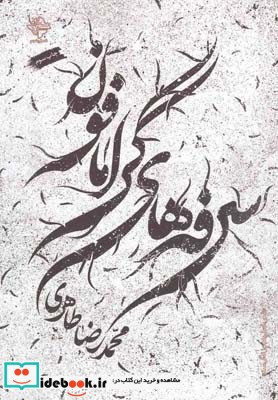 سرفه‌های
گرامافون
محمدرضا طاهری
مشاهده و خرید این کتاب در:
idebook.ir